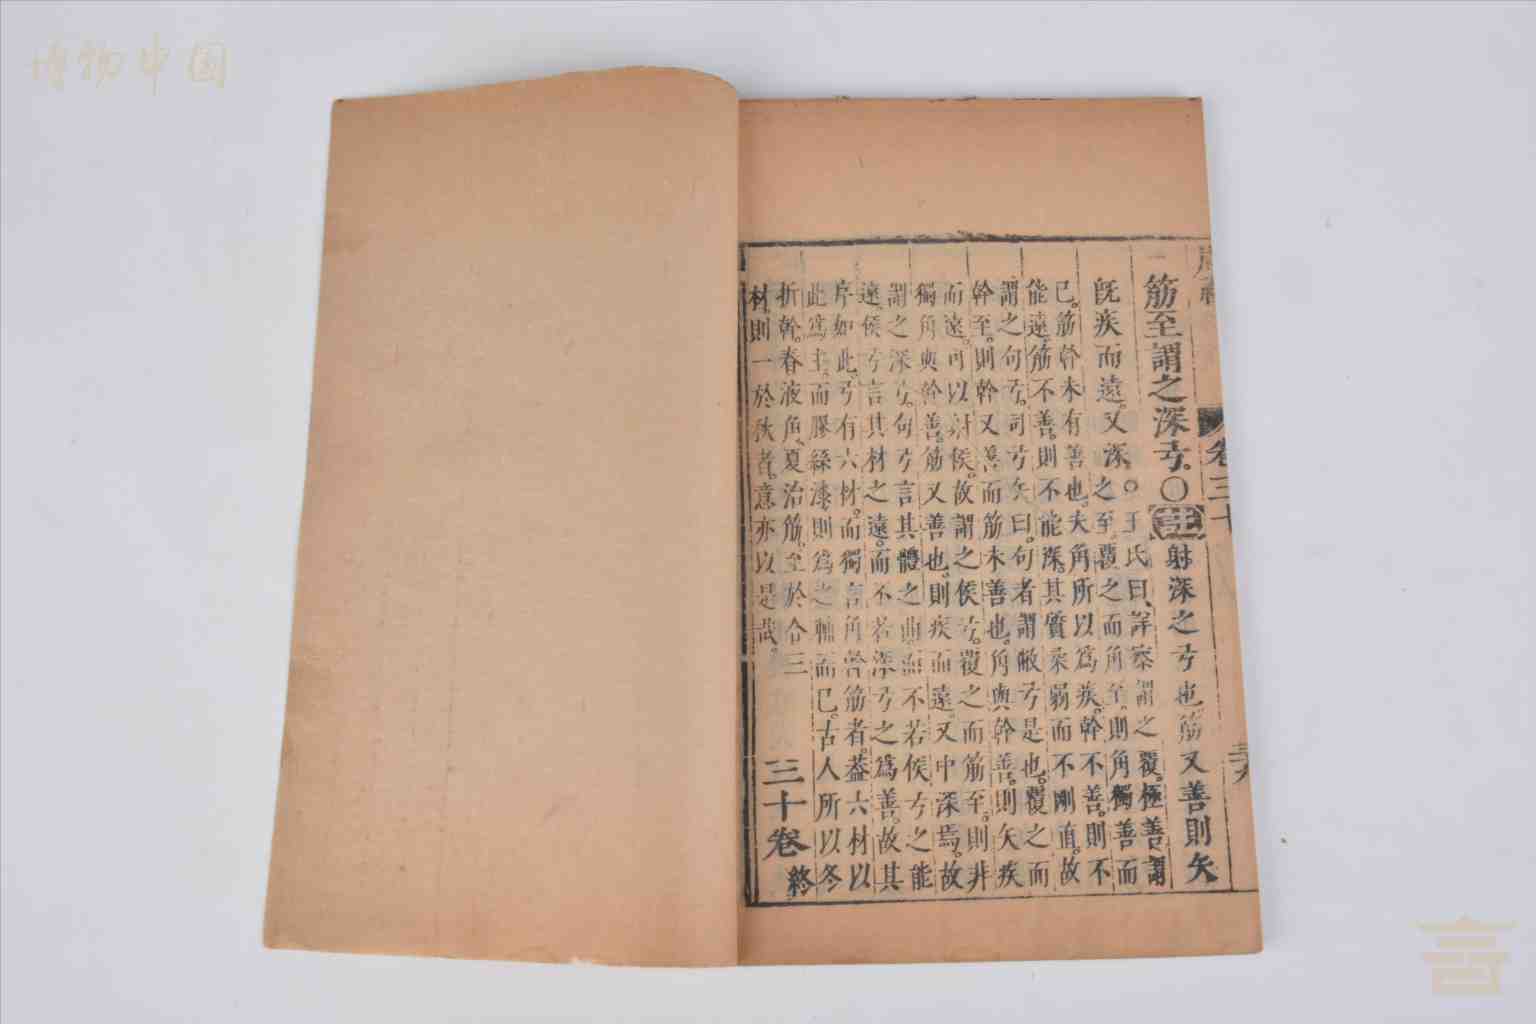 博物中国
卷三十
筋至謂之深弓。〇註射深之弓也筋又善則矢
既疾而遠。又深。〇王氏曰、詳察謂之覆。極善謂
之至。覆之而角至。則角獨善而
已。筋幹未有善也。夫角所以爲疾。幹不善。則不
能遠。筋不善。則不能深。其質柔弱而不剛直。故
謂之句弓。司弓矢曰。句者謂敝弓是也。覆之而
幹至。則幹又善而筋未善也。角與幹善。則矢疾
而遠。可以射侯。故謂之侯弓。覆之而筋至。則非
獨角與幹善。筋又善也。則疾而遠。又中深焉。故
謂之深弓。句弓言其體之曲。而不若侯弓之能
遠。侯弓言其材之遠。而不若深弓之爲善。故其
序如此。弓有六材。而獨言角幹筋者。葢六材以
此爲主。而膠絲漆。則爲之輔而已。古人所以冬
折幹。春液角。夏治筋。至於合三
材。則一於秋者。意亦以是哉。
三十卷終